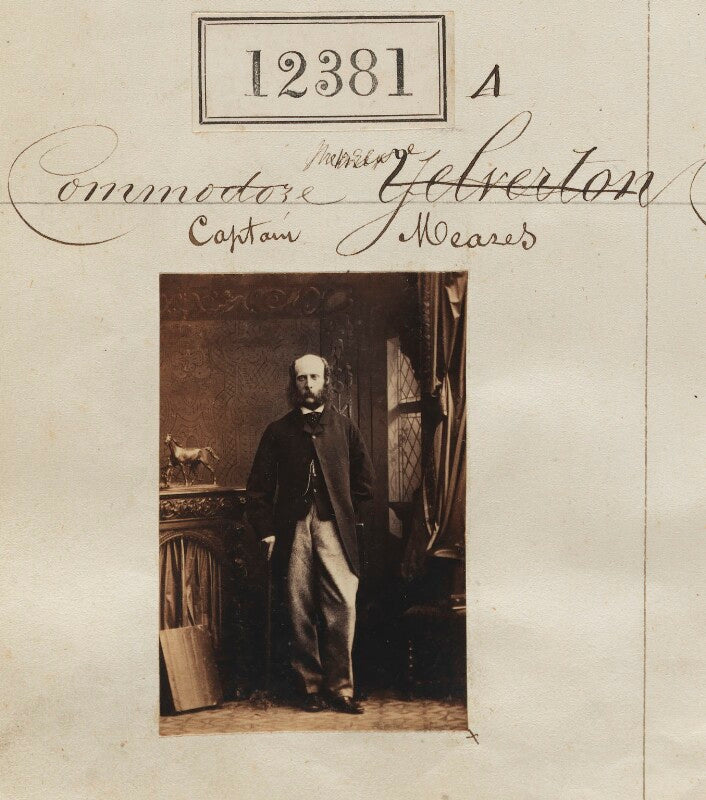 12381 A
Commodore Yelverton
Captain Meares